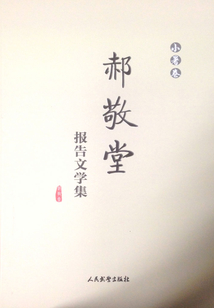 小草卷
郝敬堂
报告文学集
人民武警出版社